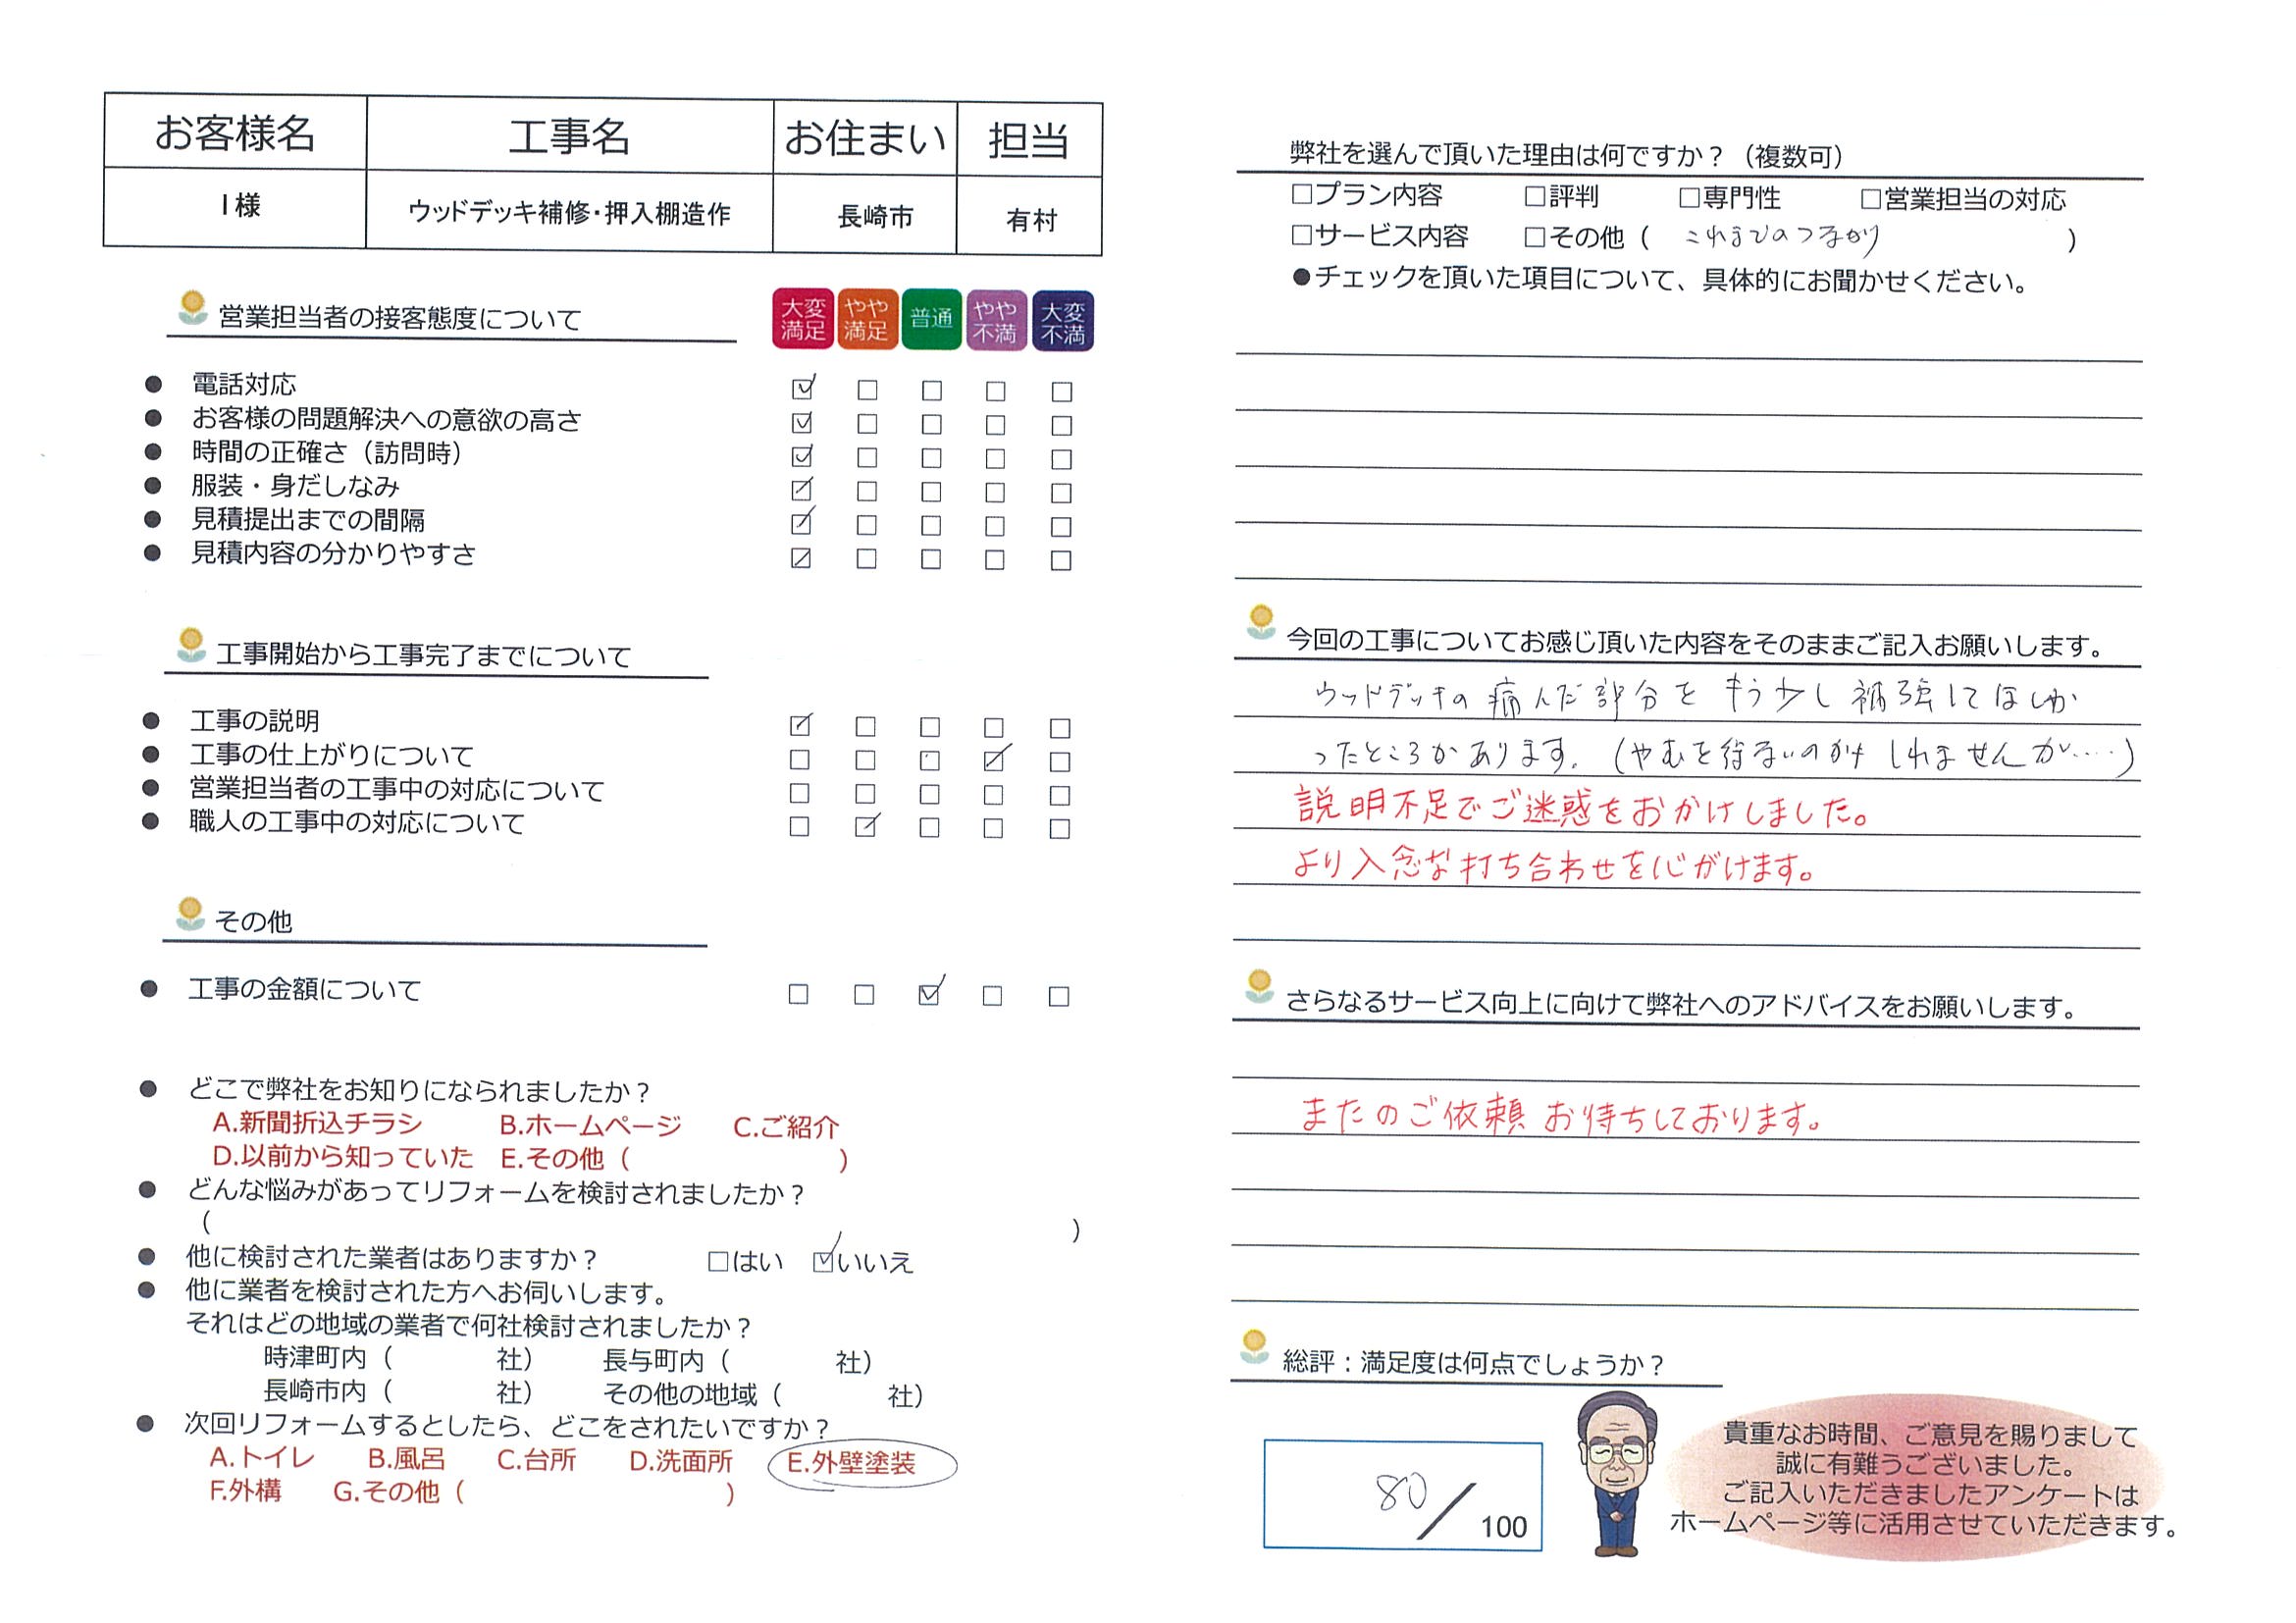 お客様名 工事名 お住まい 担当
I様 ウッドデッキ補修・押入棚造作 長崎市 有村
営業担当者の接客態度について
大変満足 やや満足 普通 やや不満 大変不満
● 電話対応 ☑ □ □ □ □
● お客様の問題解決への意欲の高さ ☑ □ □ □ □
● 時間の正確さ（訪問時） ☑ □ □ □ □
● 服装・身だしなみ ☑ □ □ □ □
● 見積提出までの間隔 ☑ □ □ □ □
● 見積内容の分かりやすさ ☑ □ □ □ □
工事開始から工事完了までについて
● 工事の説明 ☑ □ □ □ □
● 工事の仕上がりについて □ □ □ ☑ □
● 営業担当者の工事中の対応について □ □ □ □ □
● 職人の工事中の対応について □ ☑ □ □ □
その他
● 工事の金額について □ □ ☑ □ □
● どこで弊社をお知りになられましたか？
A.新聞折込チラシ B.ホームページ C.ご紹介
D.以前から知っていた E.その他（ ）
● どんな悩みがあってリフォームを検討されましたか？
（ ）
● 他に検討された業者はありますか？ □はい ☑いいえ
● 他に業者を検討された方へお伺いします。
それはどの地域の業者で何社検討されましたか？
時津町内（ 社） 長与町内（ 社）
長崎市内（ 社） その他の地域（ 社）
● 次回リフォームするとしたら、どこをされたいですか？
A.トイレ B.風呂 C.台所 D.洗面所 E.外壁塗装
F.外構 G.その他（ ）
弊社を選んで頂いた理由は何ですか？（複数可）
□プラン内容 □評判 □専門性 □営業担当の対応
□サービス内容 □その他（ これまでのつながり ）
●チェックを頂いた項目について、具体的にお聞かせください。
今回の工事についてお感じ頂いた内容をそのままご記入お願いします。
ウッドデッキの痛んだ部分をもう少し補強してほしか
ったところがあります。（やむを得ないのかもしれませんが……）
説明不足でご迷惑をおかけしました。
より入念な打ち合わせを心がけます。
さらなるサービス向上に向けて弊社へのアドバイスをお願いします。
またのご依頼お待ちしております。
総評：満足度は何点でしょうか？
80/100
貴重なお時間、ご意見を賜りまして
誠に有難うございました。
ご記入いただきましたアンケートは
ホームページ等に活用させていただきます。